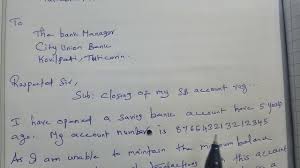 To
The bank Manager
City Union Bank
Kovilpatti, Tuticorin.
Respected Sir,
Sub: Closing of my SB account reg
I have opened a saving bank account have 5 years
ago. My account number is
As I am unable to maintain the minimum balance
this account